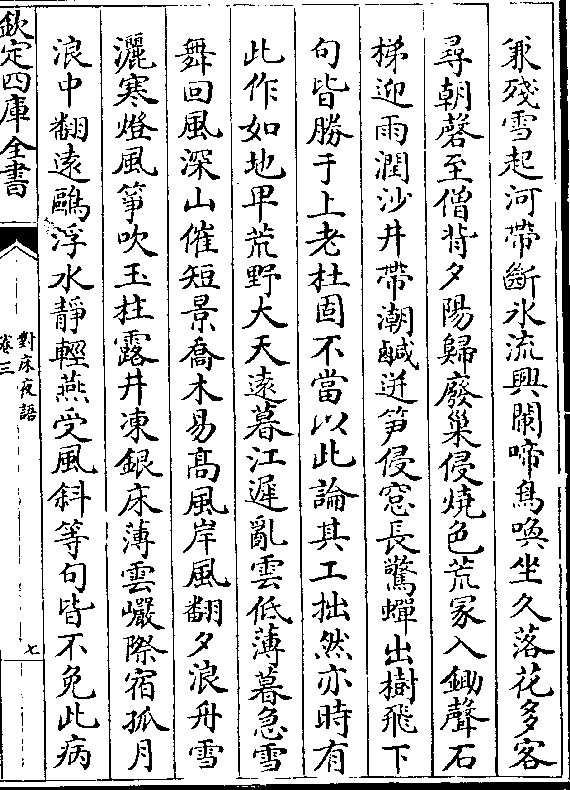 兼殘雪起河帶斷氷流興闌啼鳥喚坐久落花多客
尋朝磬至僧背夕陽歸廢巢侵燒色荒冡入鋤聲石
梯迎雨潤沙井帶潮鹹迸笋侵窓長驚蟬出樹飛下
句皆勝于上老杜固不當以此論其工拙然亦時有
此作如地卑荒野大天遠暮江遲亂雲低薄暮急雪
舞回風深山催短景喬木易髙風岸風翻夕浪舟雪
灑寒燈風箏吹玉柱露井凍銀床薄雲巖際宿孤月
浪中翻遠鷗浮水靜輕燕受風斜等句皆不免此病
欽定四庫全書
對床夜語
卷三
七